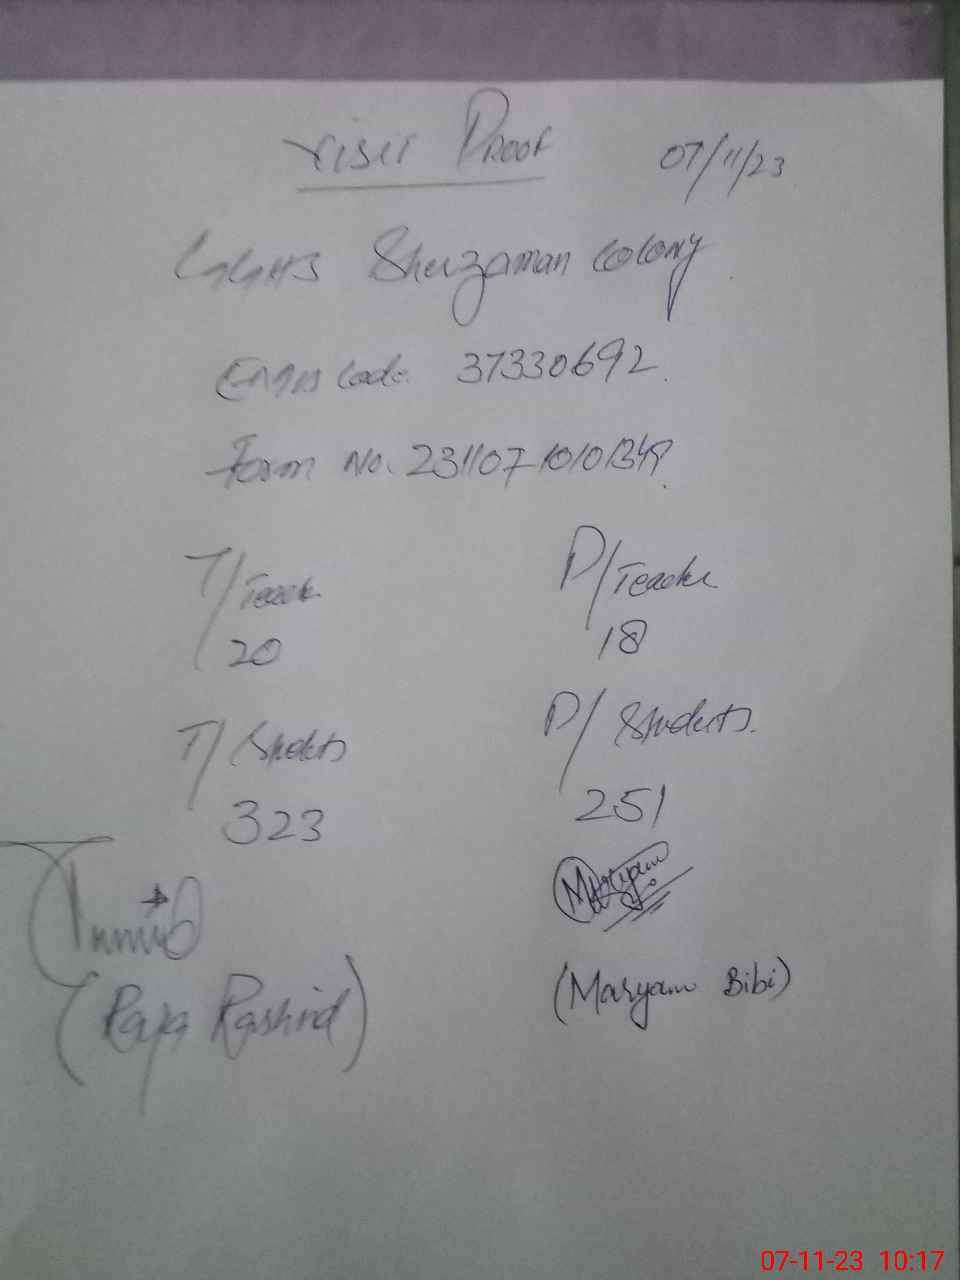 Visit Proof 07/11/23
GGHS Sherzaman Colony
Emis Code. 37330692.
Form No. 23110710101349.
T/Teach P/Teacher
20 18
T/Students P/Students.
323 251
Maryam
(Raja Rashid) (Maryam Bibi)
07-11-23 10:17